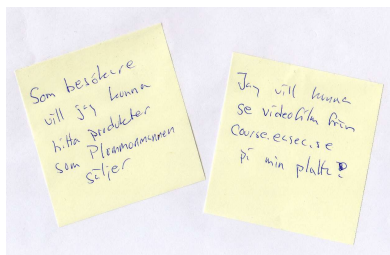 Som besökare
vill jag kunna
hitta produkter
som Plommonmannen
säljer
Jag vill kunna
se videofilm från
course.ecsec.se
på min platta